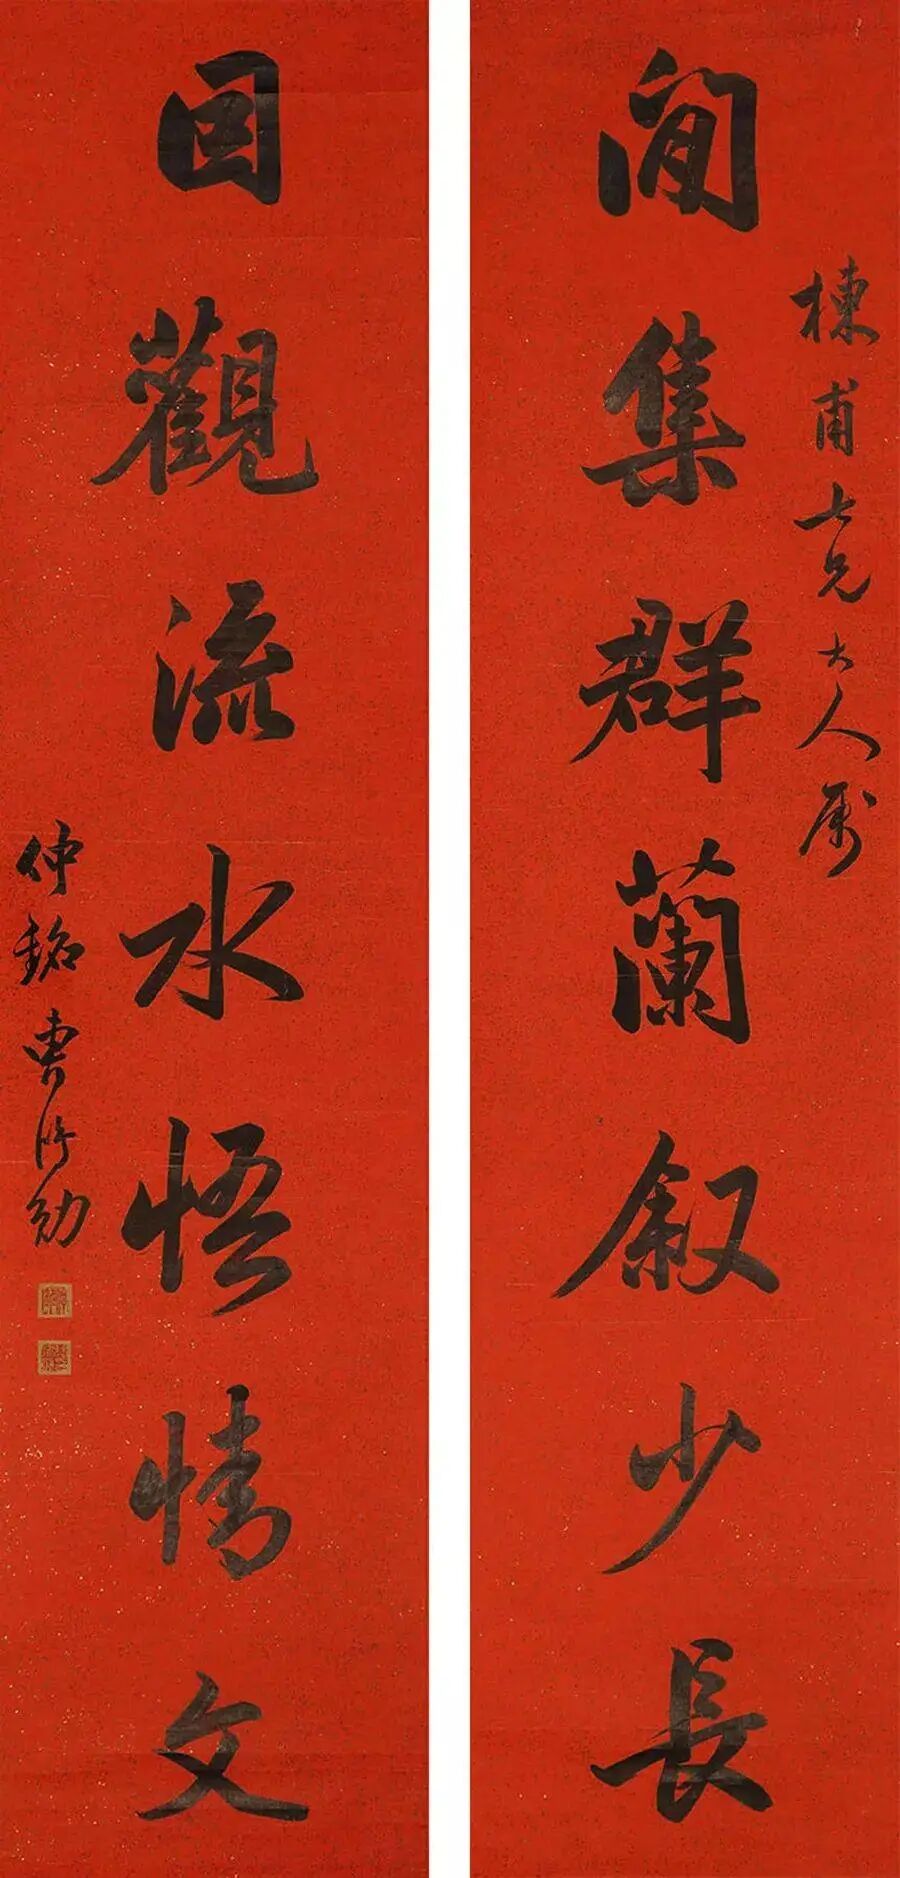 閒集群蘭叙少長
棟甫七兄大人属
因觀流水悟情文
仲銘曹